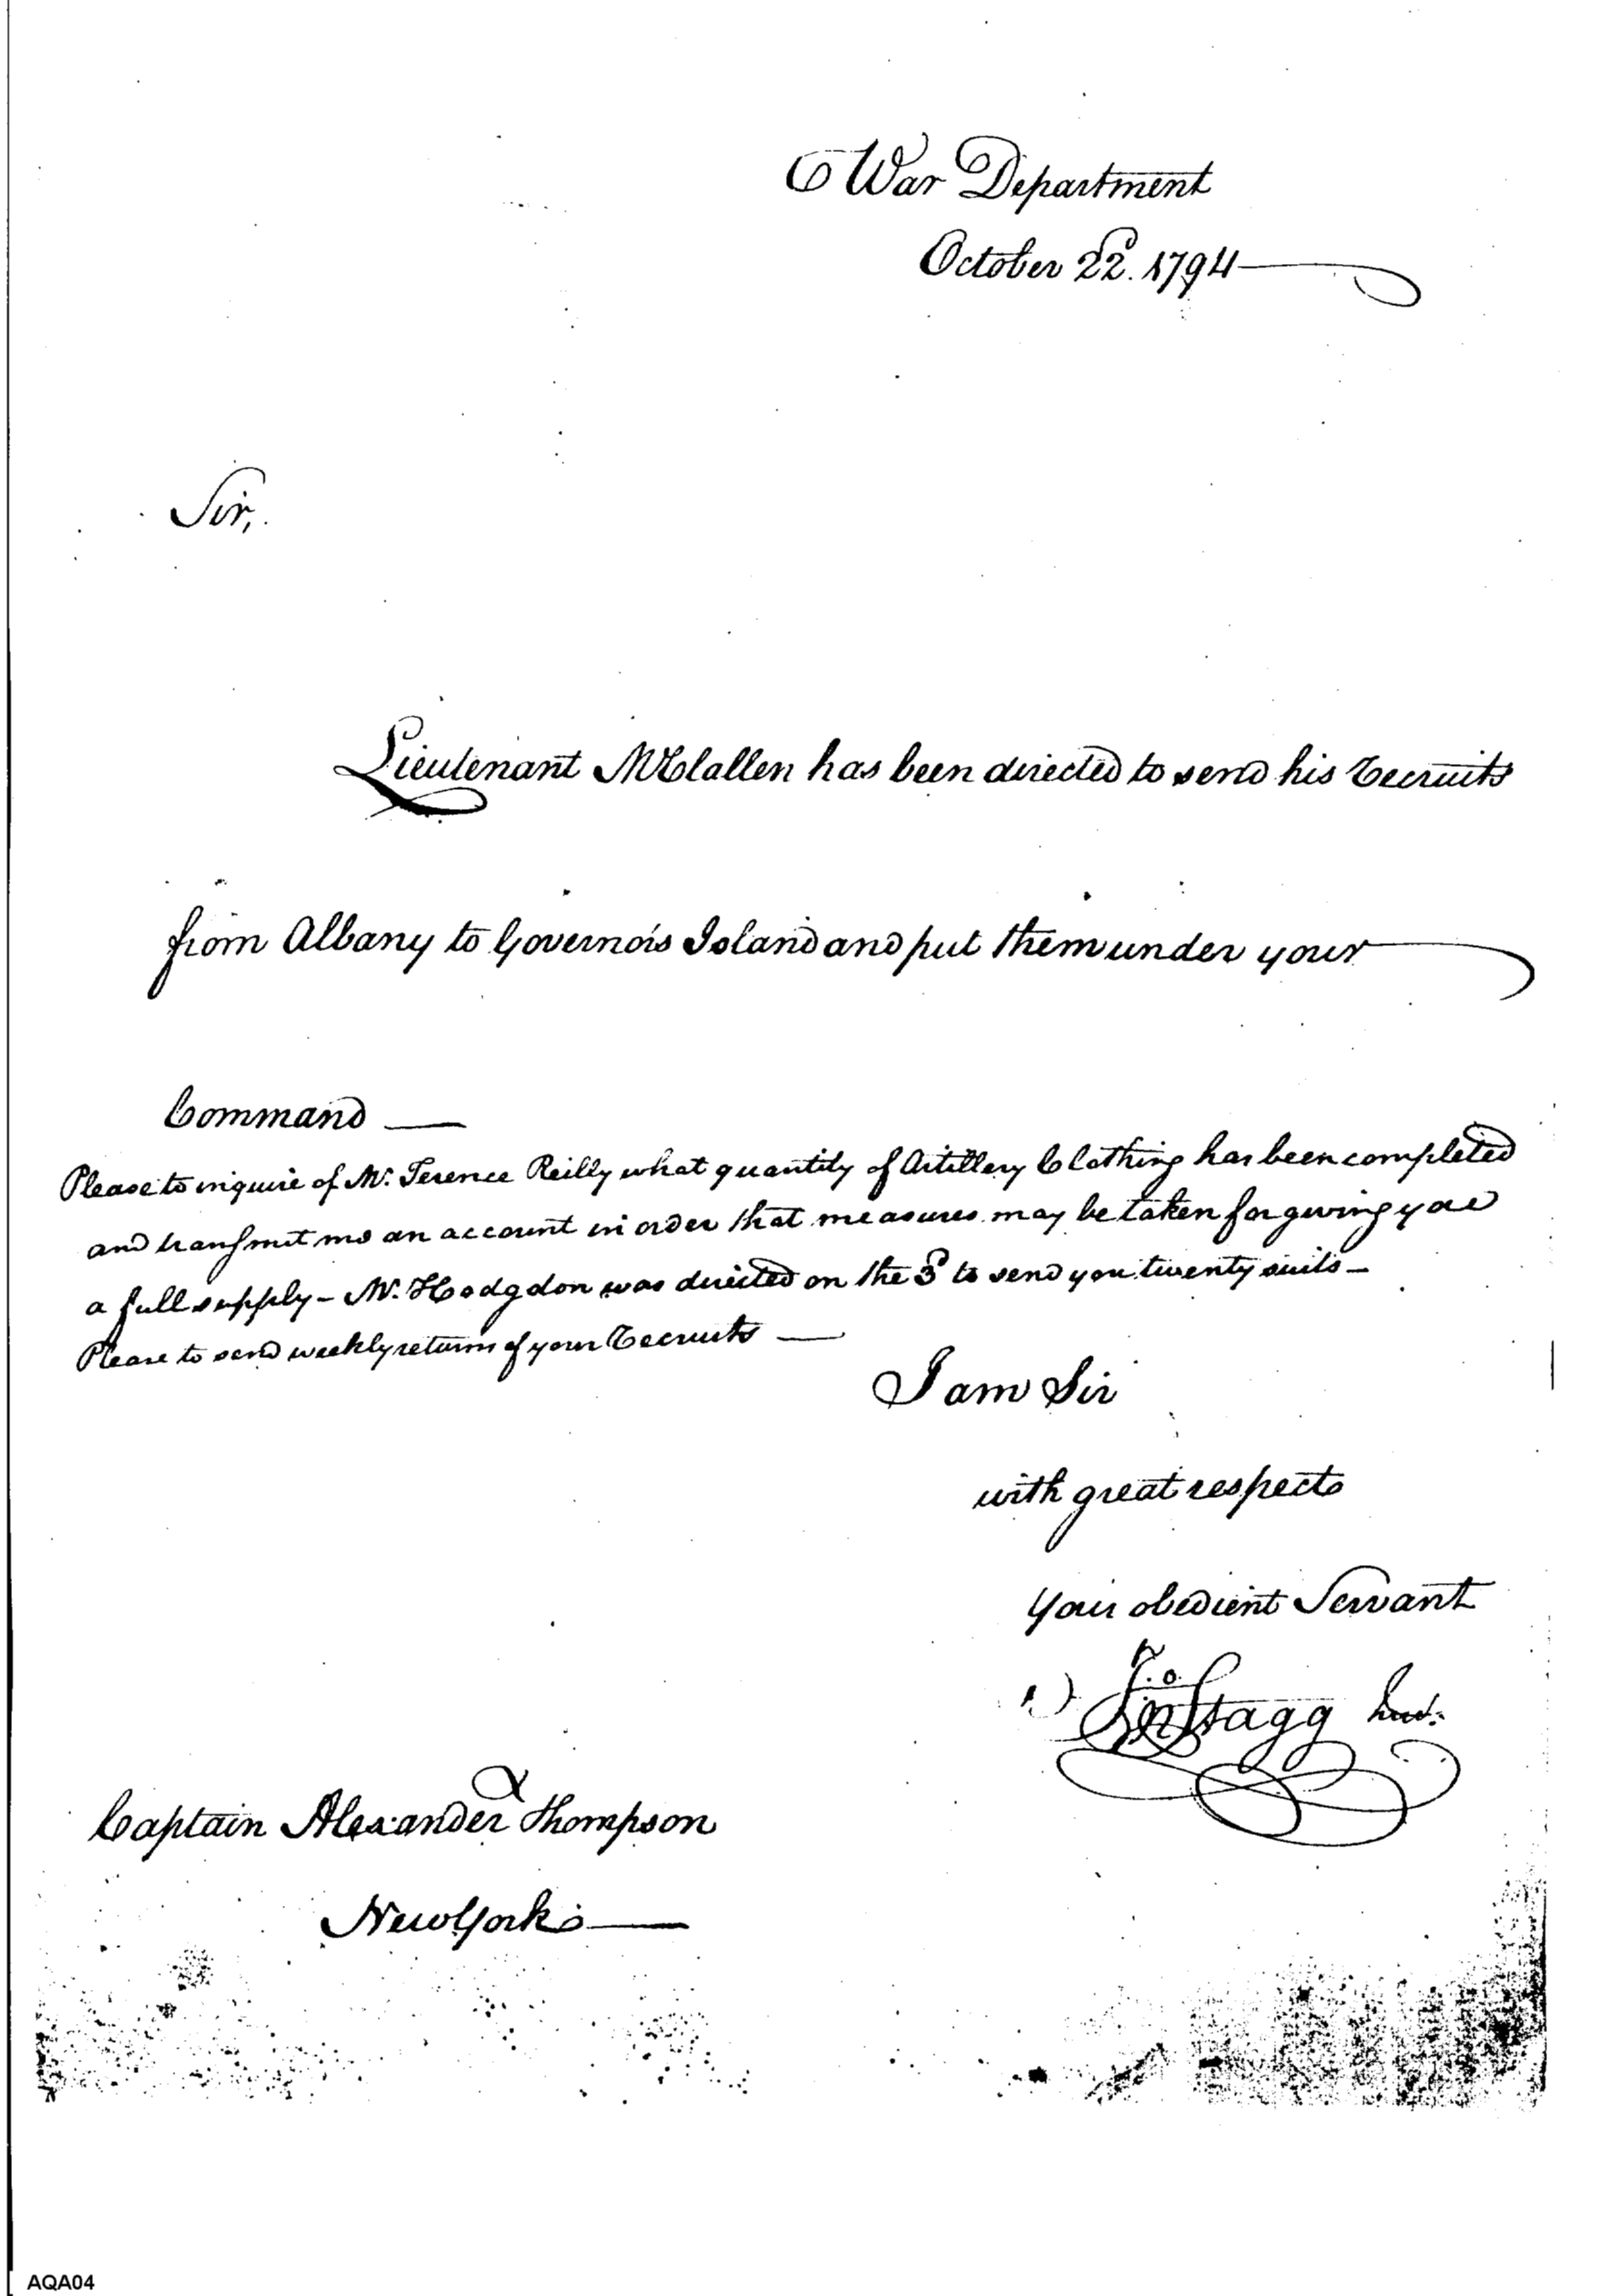 War Department
October 22d. 1794
Sir,
Lieutenant McClallen has been directed to send his Recruits
from Albany to Governor's Island and put them under your
Command —
Please to inquire of Mr. Terence Reilly what quantity of Artillery Clothing has been completed
and transmit me an account in order that measures may be taken for giving you
a full supply – Mr. Hodgdon was directed on the 3d to send you twenty suits –
Please to send weekly returns of your Recruits —
I am Sir
with great respect
Your obedient Servant
Jno Stagg Junr.
Captain Alexander Thompson
New York —
AQA04